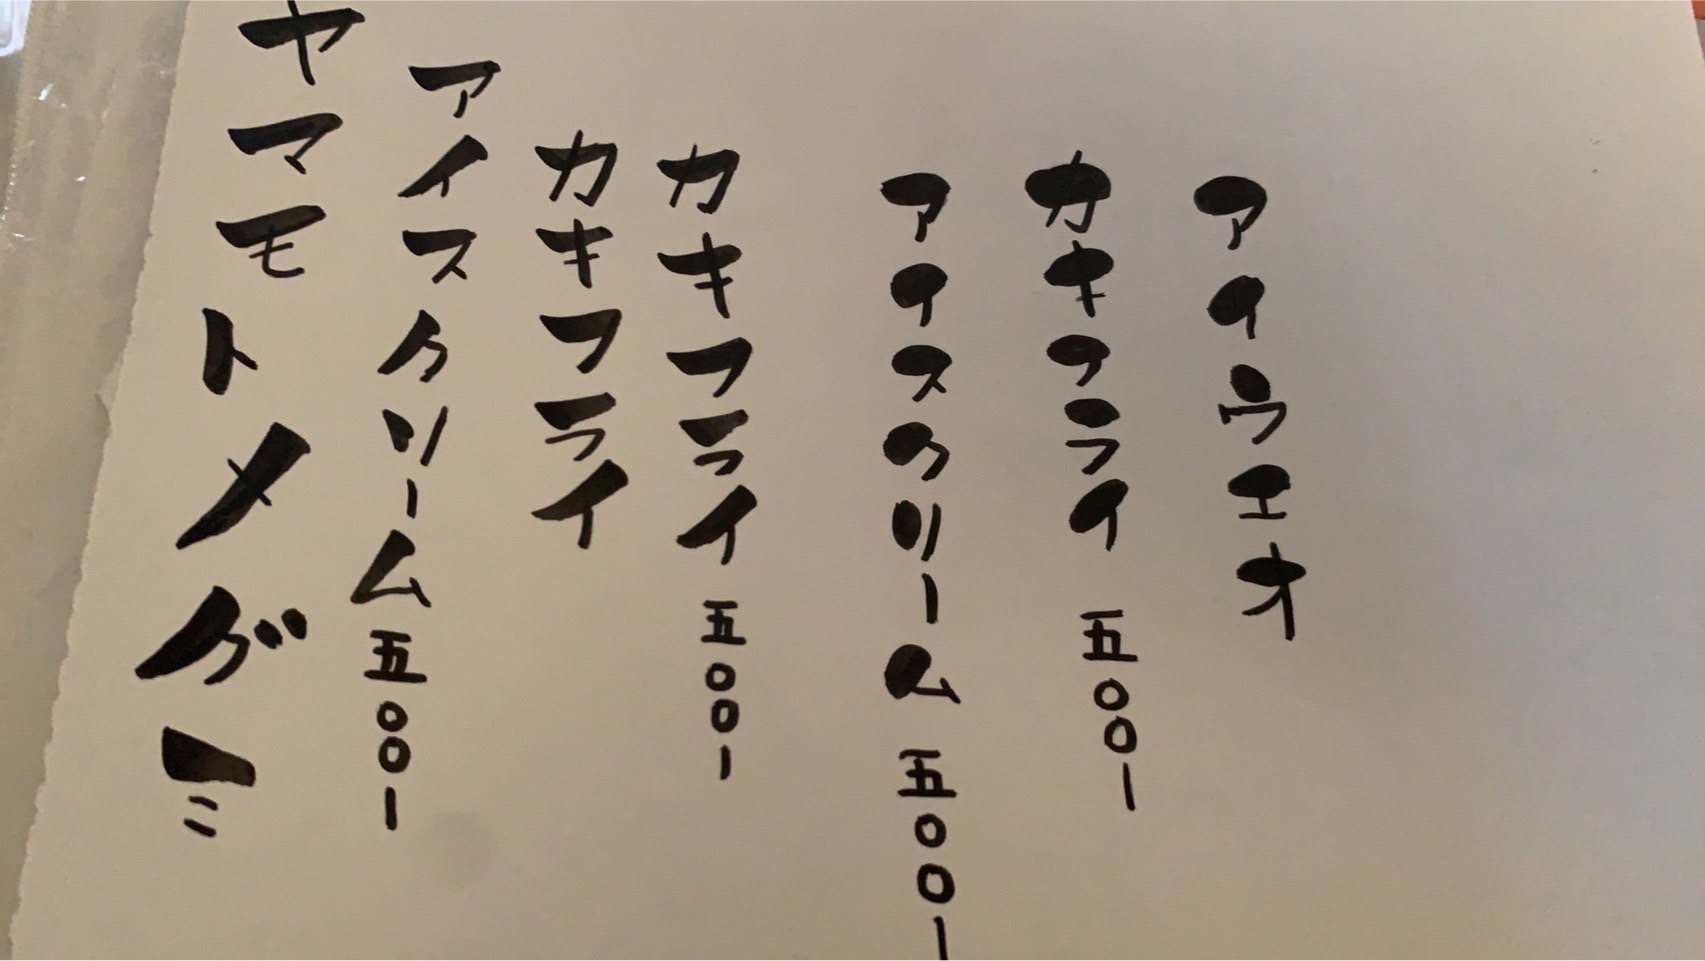 アイウエオ
カキフライ 五〇〇ー
アイスクリーム 五〇〇ー
カキフライ 五〇〇ー
カキフライ
アイスクリーム 五〇〇ー
ヤマモトメグミ